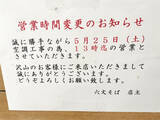 営業時間変更のお知らせ
誠に勝手ながら5月25日(土)
空調工事の為、13時迄の営業と
させていただきます。
沢山のお客様にご来店いただきまして
誠にありがとうございます。
どうぞよろしくお願い致します。
六文そば 店主